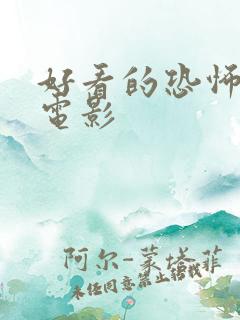 好看的恐怖
電影
阿尔-蒙塔菲
未经同意禁止转载